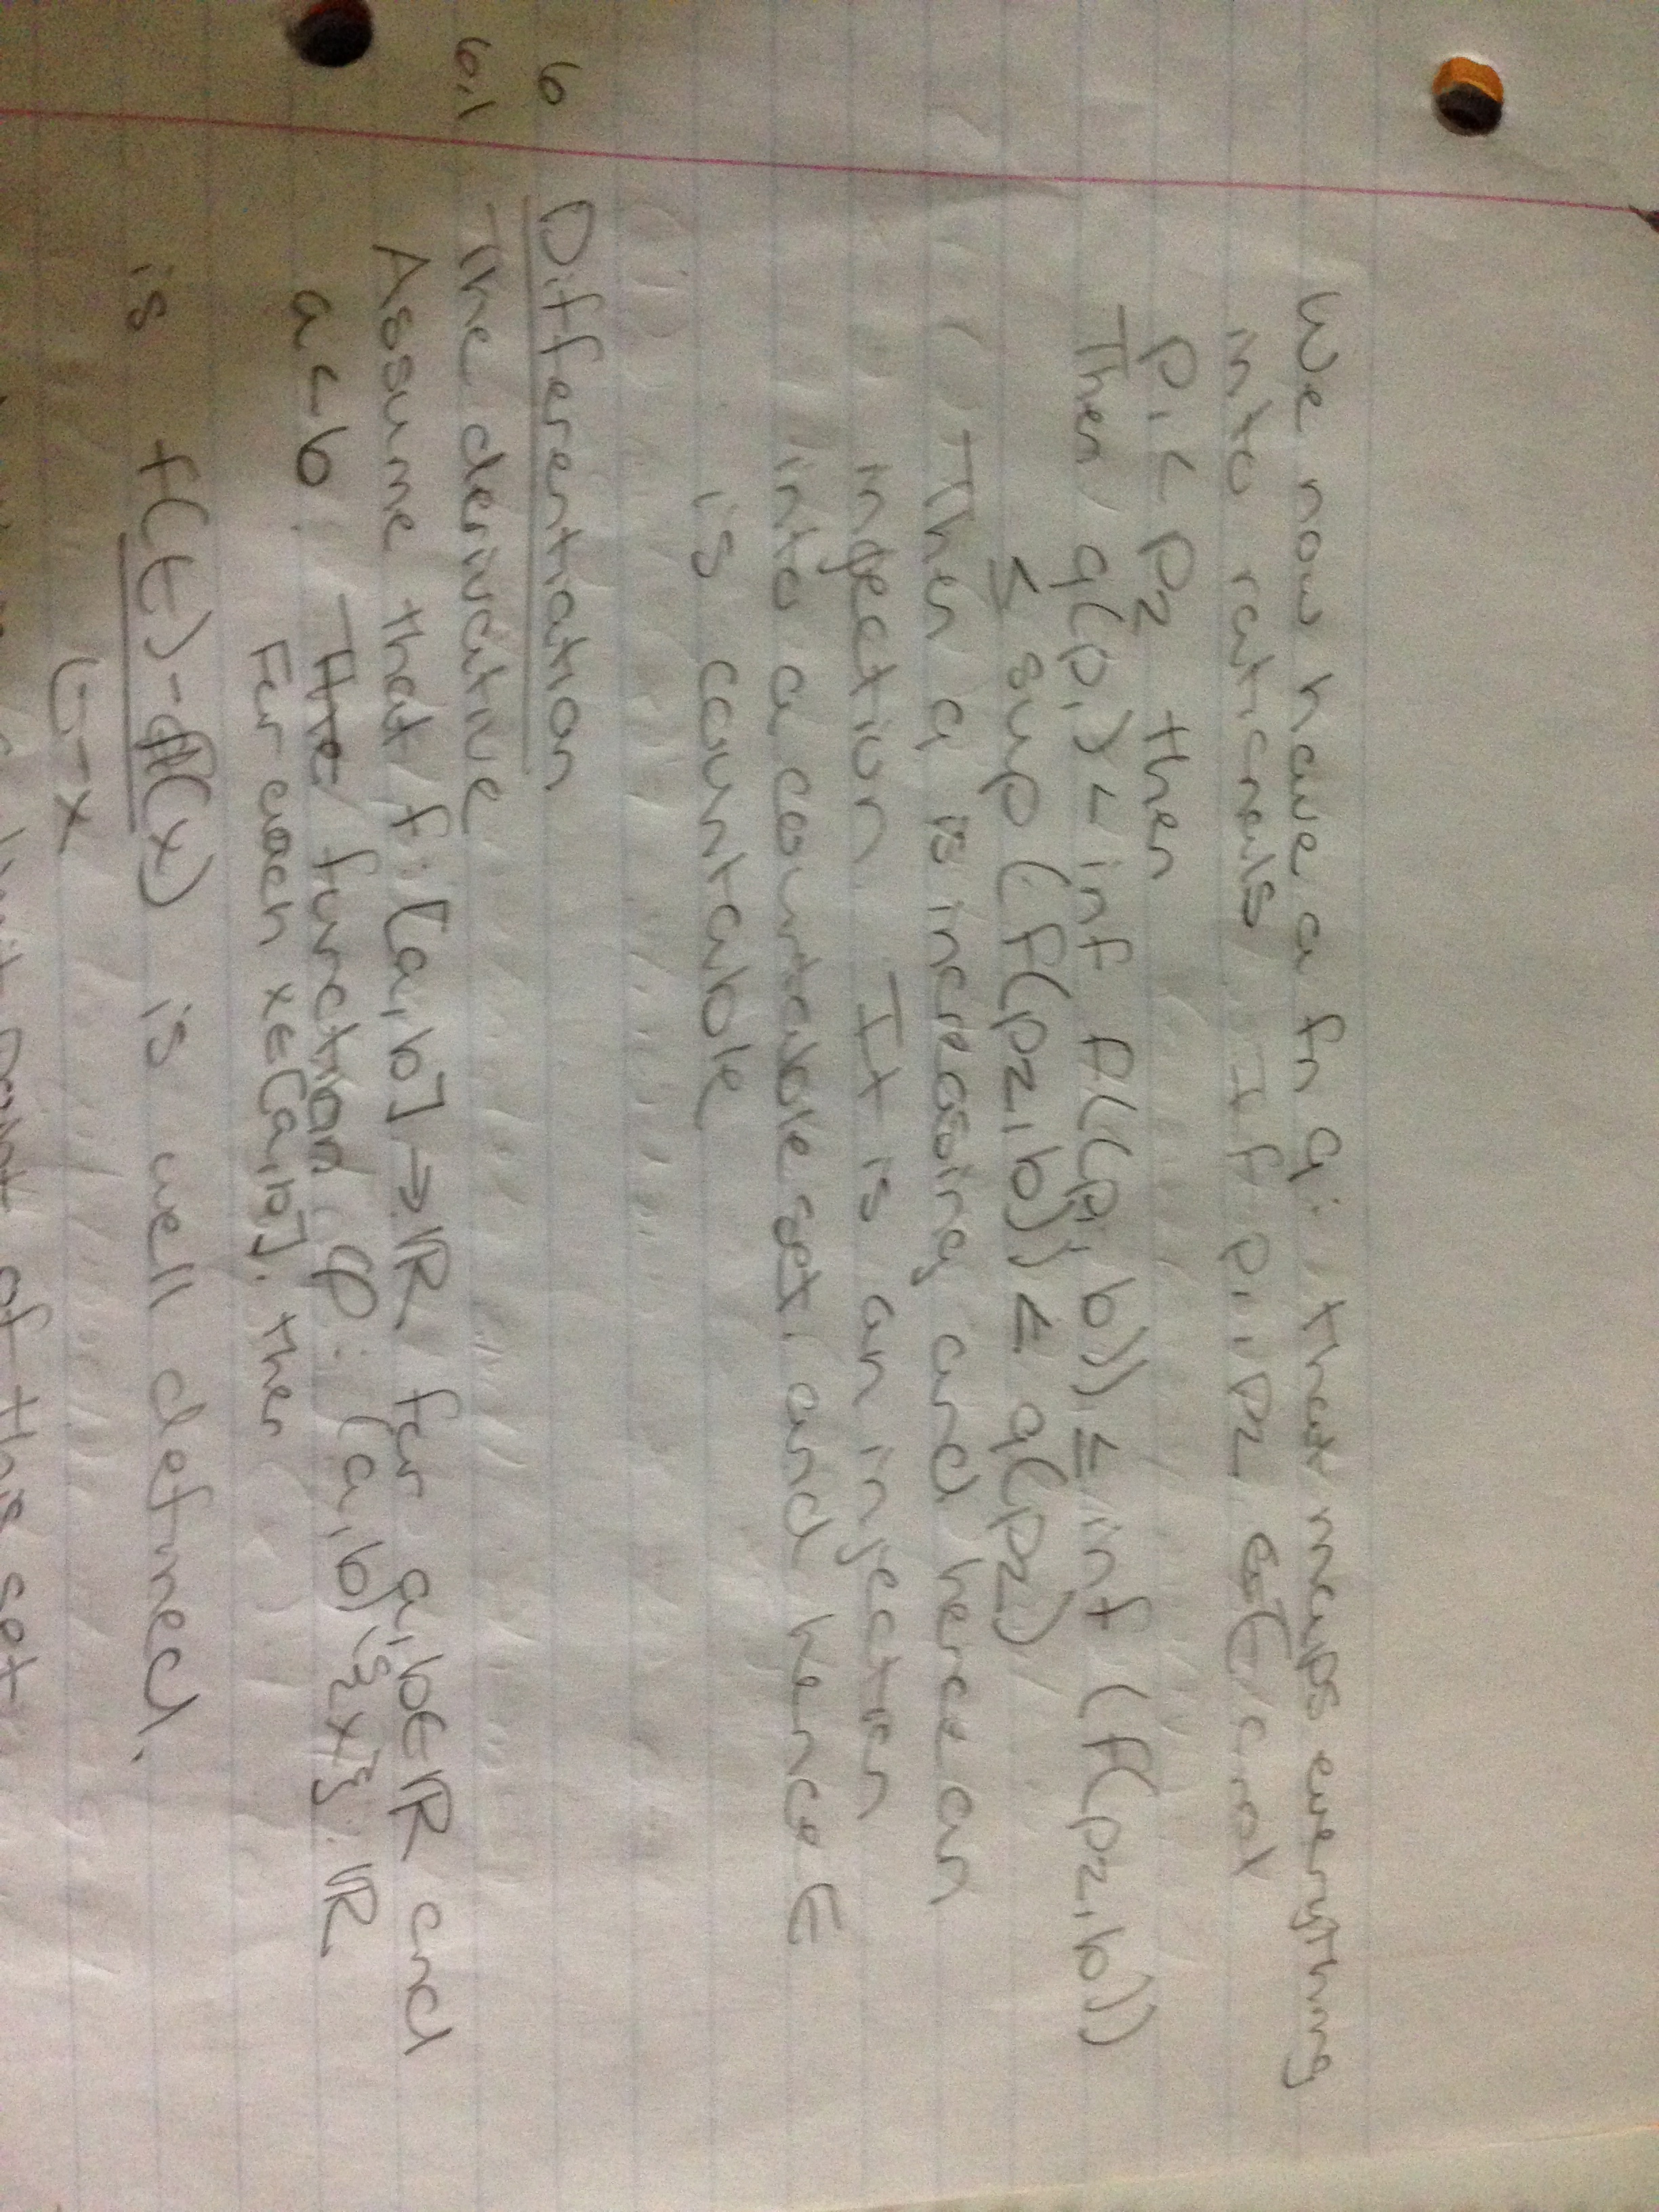 We now have a fn q: that maps everything
into rationals. If p1, p2 ∈ E and
p1 < p2 then
Then q(p1) < inf f((p1, b)) ≤ inf (f(p2, b))
≤ sup (f(p2, b)) ≤ q(p2)
Then q is increasing and hence an
injection. It is an injection
into a countable set, and hence E
is countable
6 Differentiation
6.1 The derivative
Assume that f: [a, b] → ℝ for a, b ∈ ℝ and
a < b. The function φ: (a, b)\{x}: ℝ
For each x ∈ [a, b], then
is f(t) - f(x) is well defined.
t - x
limit point of this set